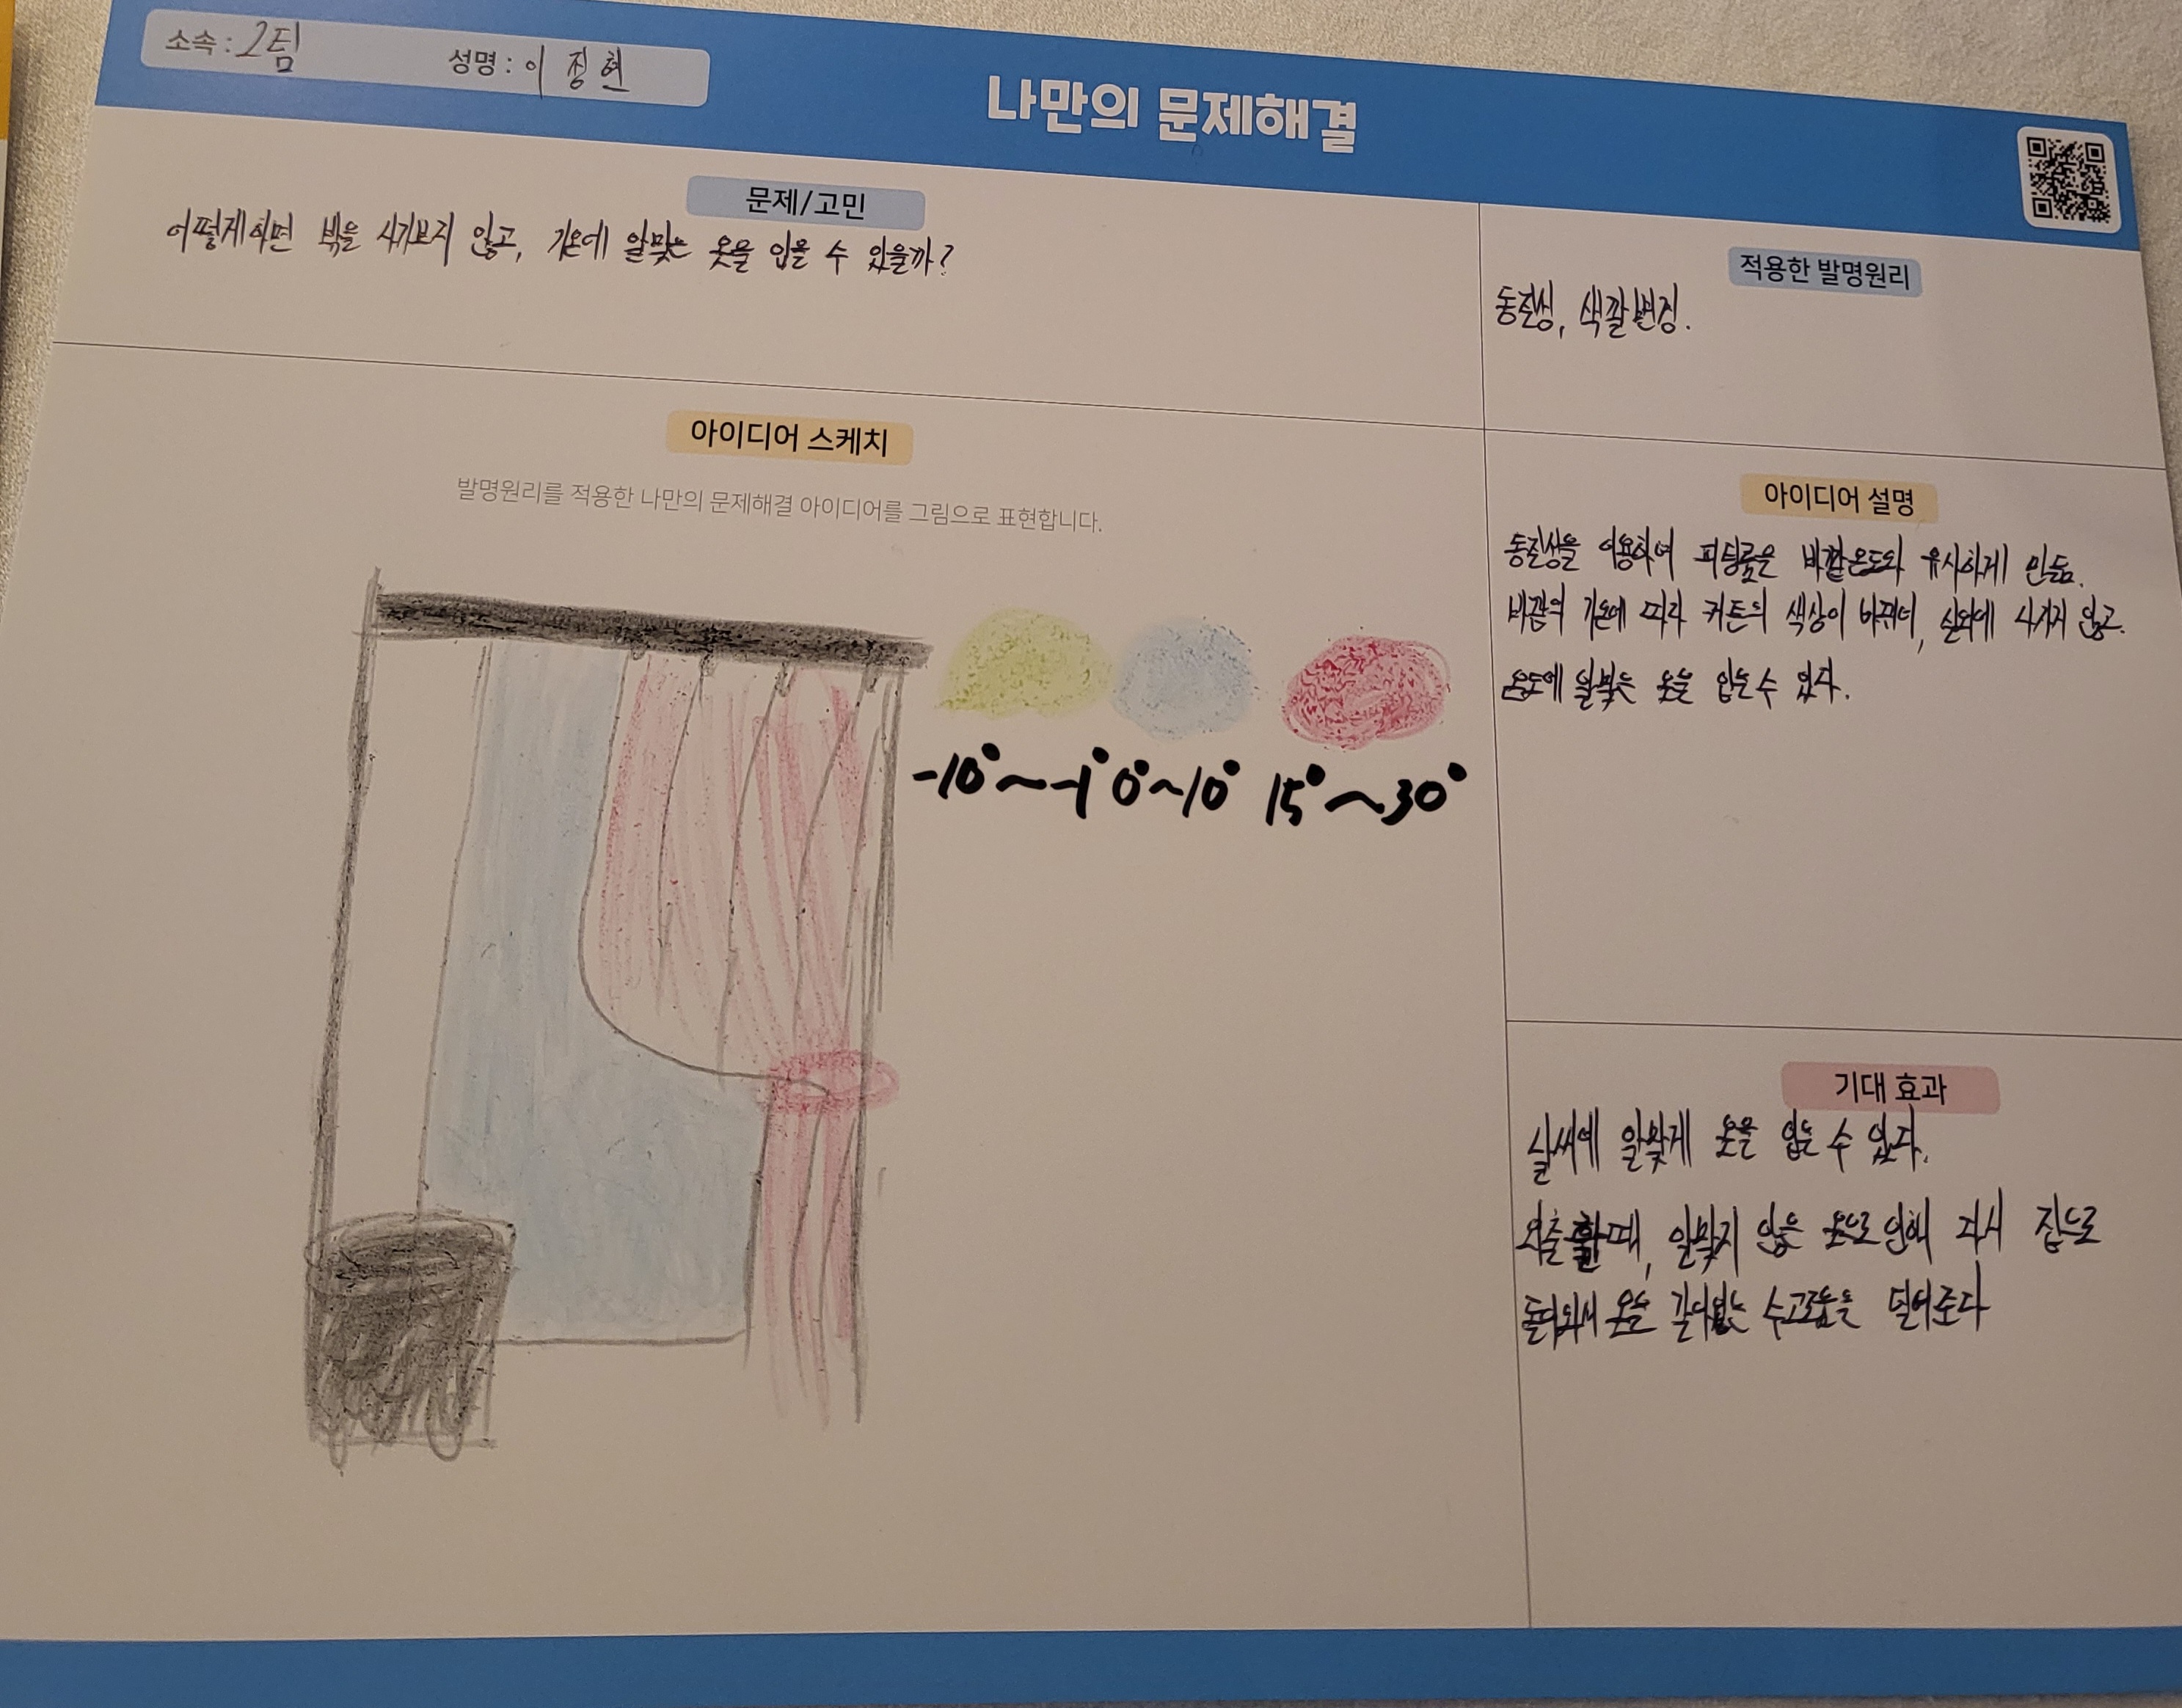 소속 : 2팀
성명 : 이정현
나만의 문제해결
문제/고민
어떻게하면 밖을 나가보지 않고, 기온에 알맞는 옷을 입을 수 있을까?
적용한 발명원리
동질성, 색깔변경.
아이디어 스케치
발명원리를 적용한 나만의 문제해결 아이디어를 그림으로 표현합니다.
-10°~-1° 0°~10° 15°~30°
아이디어 설명
동질성을 이용하여 피팅룸은 바깥온도와 유사하게 만듬.
바깥의 기온에 따라 커튼의 색상이 바뀌어, 실외에 나가지 않고.
온도에 알맞은 옷을 입는수 있다.
기대 효과
날씨에 알맞게 옷을 입는 수 있다.
외출 할때, 알맞지 않은 옷으로 인해 다시 집으로
돌아와서 옷을 갈아입는 수고로움을 덜어준다